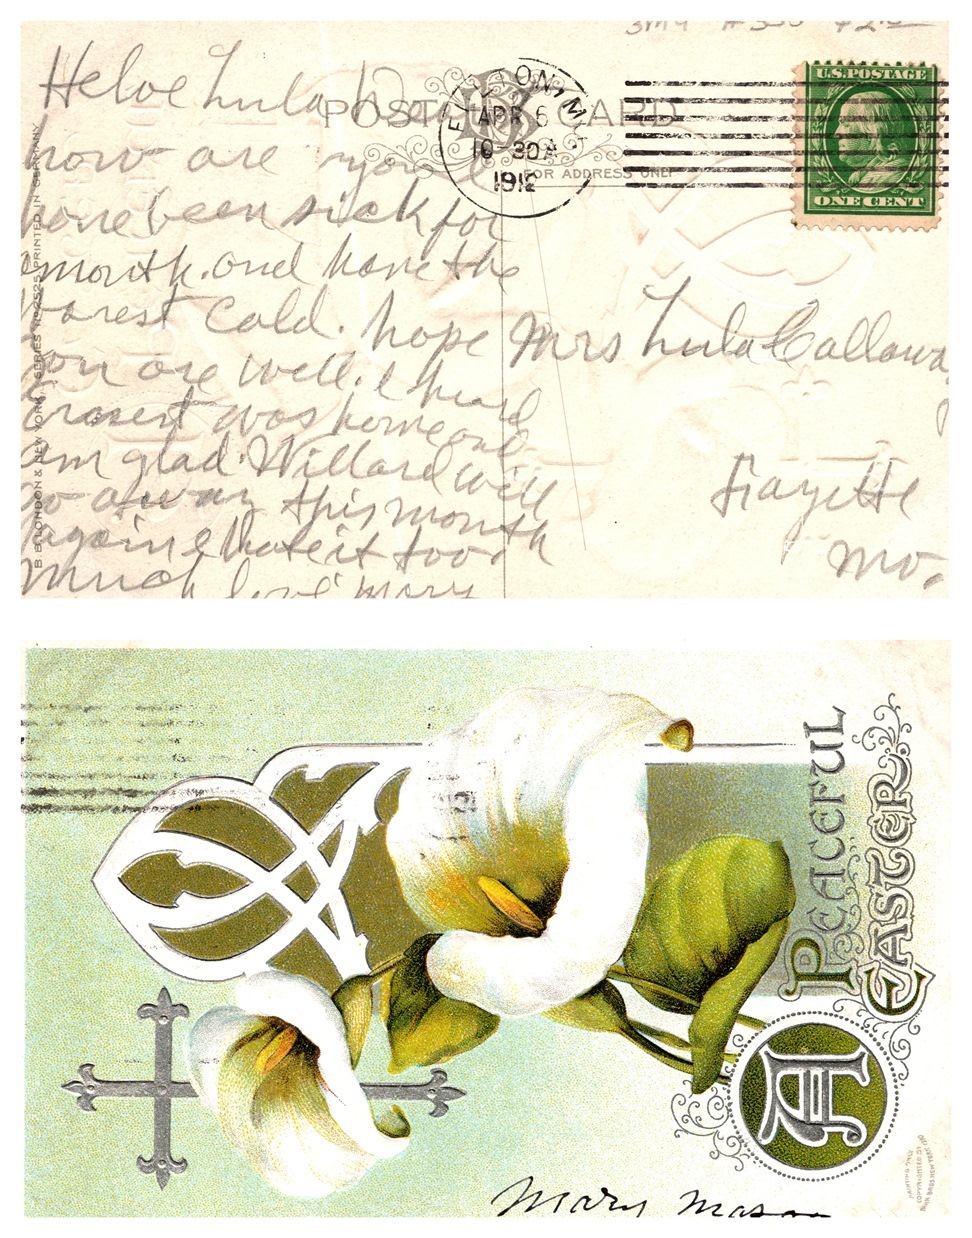 POST CARD
FOR ADDRESS ONLY
APR 6
10 30 A
1912
U.S. POSTAGE
ONE CENT
Heloe Lula
how are you
hone been sick for
month. and have the
worest cold. hope
you are well. I heard
was home and
am glad. Willard will
go away this month
again I hate it too
much love Mary
Mrs Lula Callaway
Fayette
Mo.
B.B. LONDON & NEW YORK. SERIES No 2525 PRINTED IN GERMANY
A
PEACEFUL
EASTER.
Mary Mason
PAINTING ONLY
COPYRIGHTED BY
NEW YORK